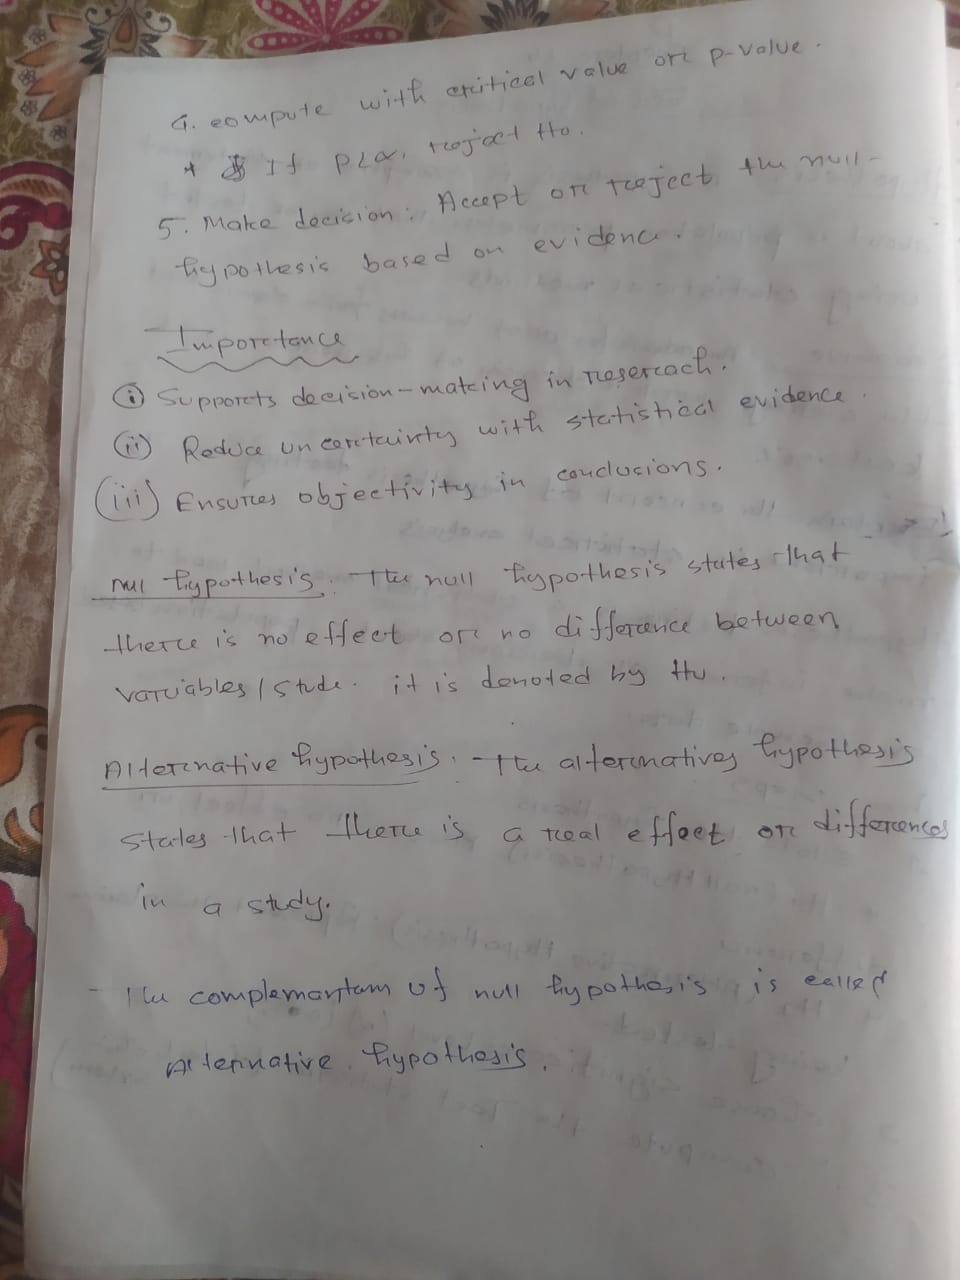 4. compute with critical value or p-value.
* If P<α, reject Ho.
5. Make decision: Accept or reject the null-
hypothesis based on evidence.
Importance
(i) Supports decision-making in reserach.
(ii) Reduce uncertainty with statistical evidence.
(iii) Ensures objectivity in conclusions.
null hypothesis. The null hypothesis states that
there is no effect or no difference between
variables/stude. it is denoted by Ho.
Alternative hypothesis. The alternatives hypothesis
states that there is a real effect or differences
in a study.
- The complemantam of null hypothesis is called
Alternative hypothesis.